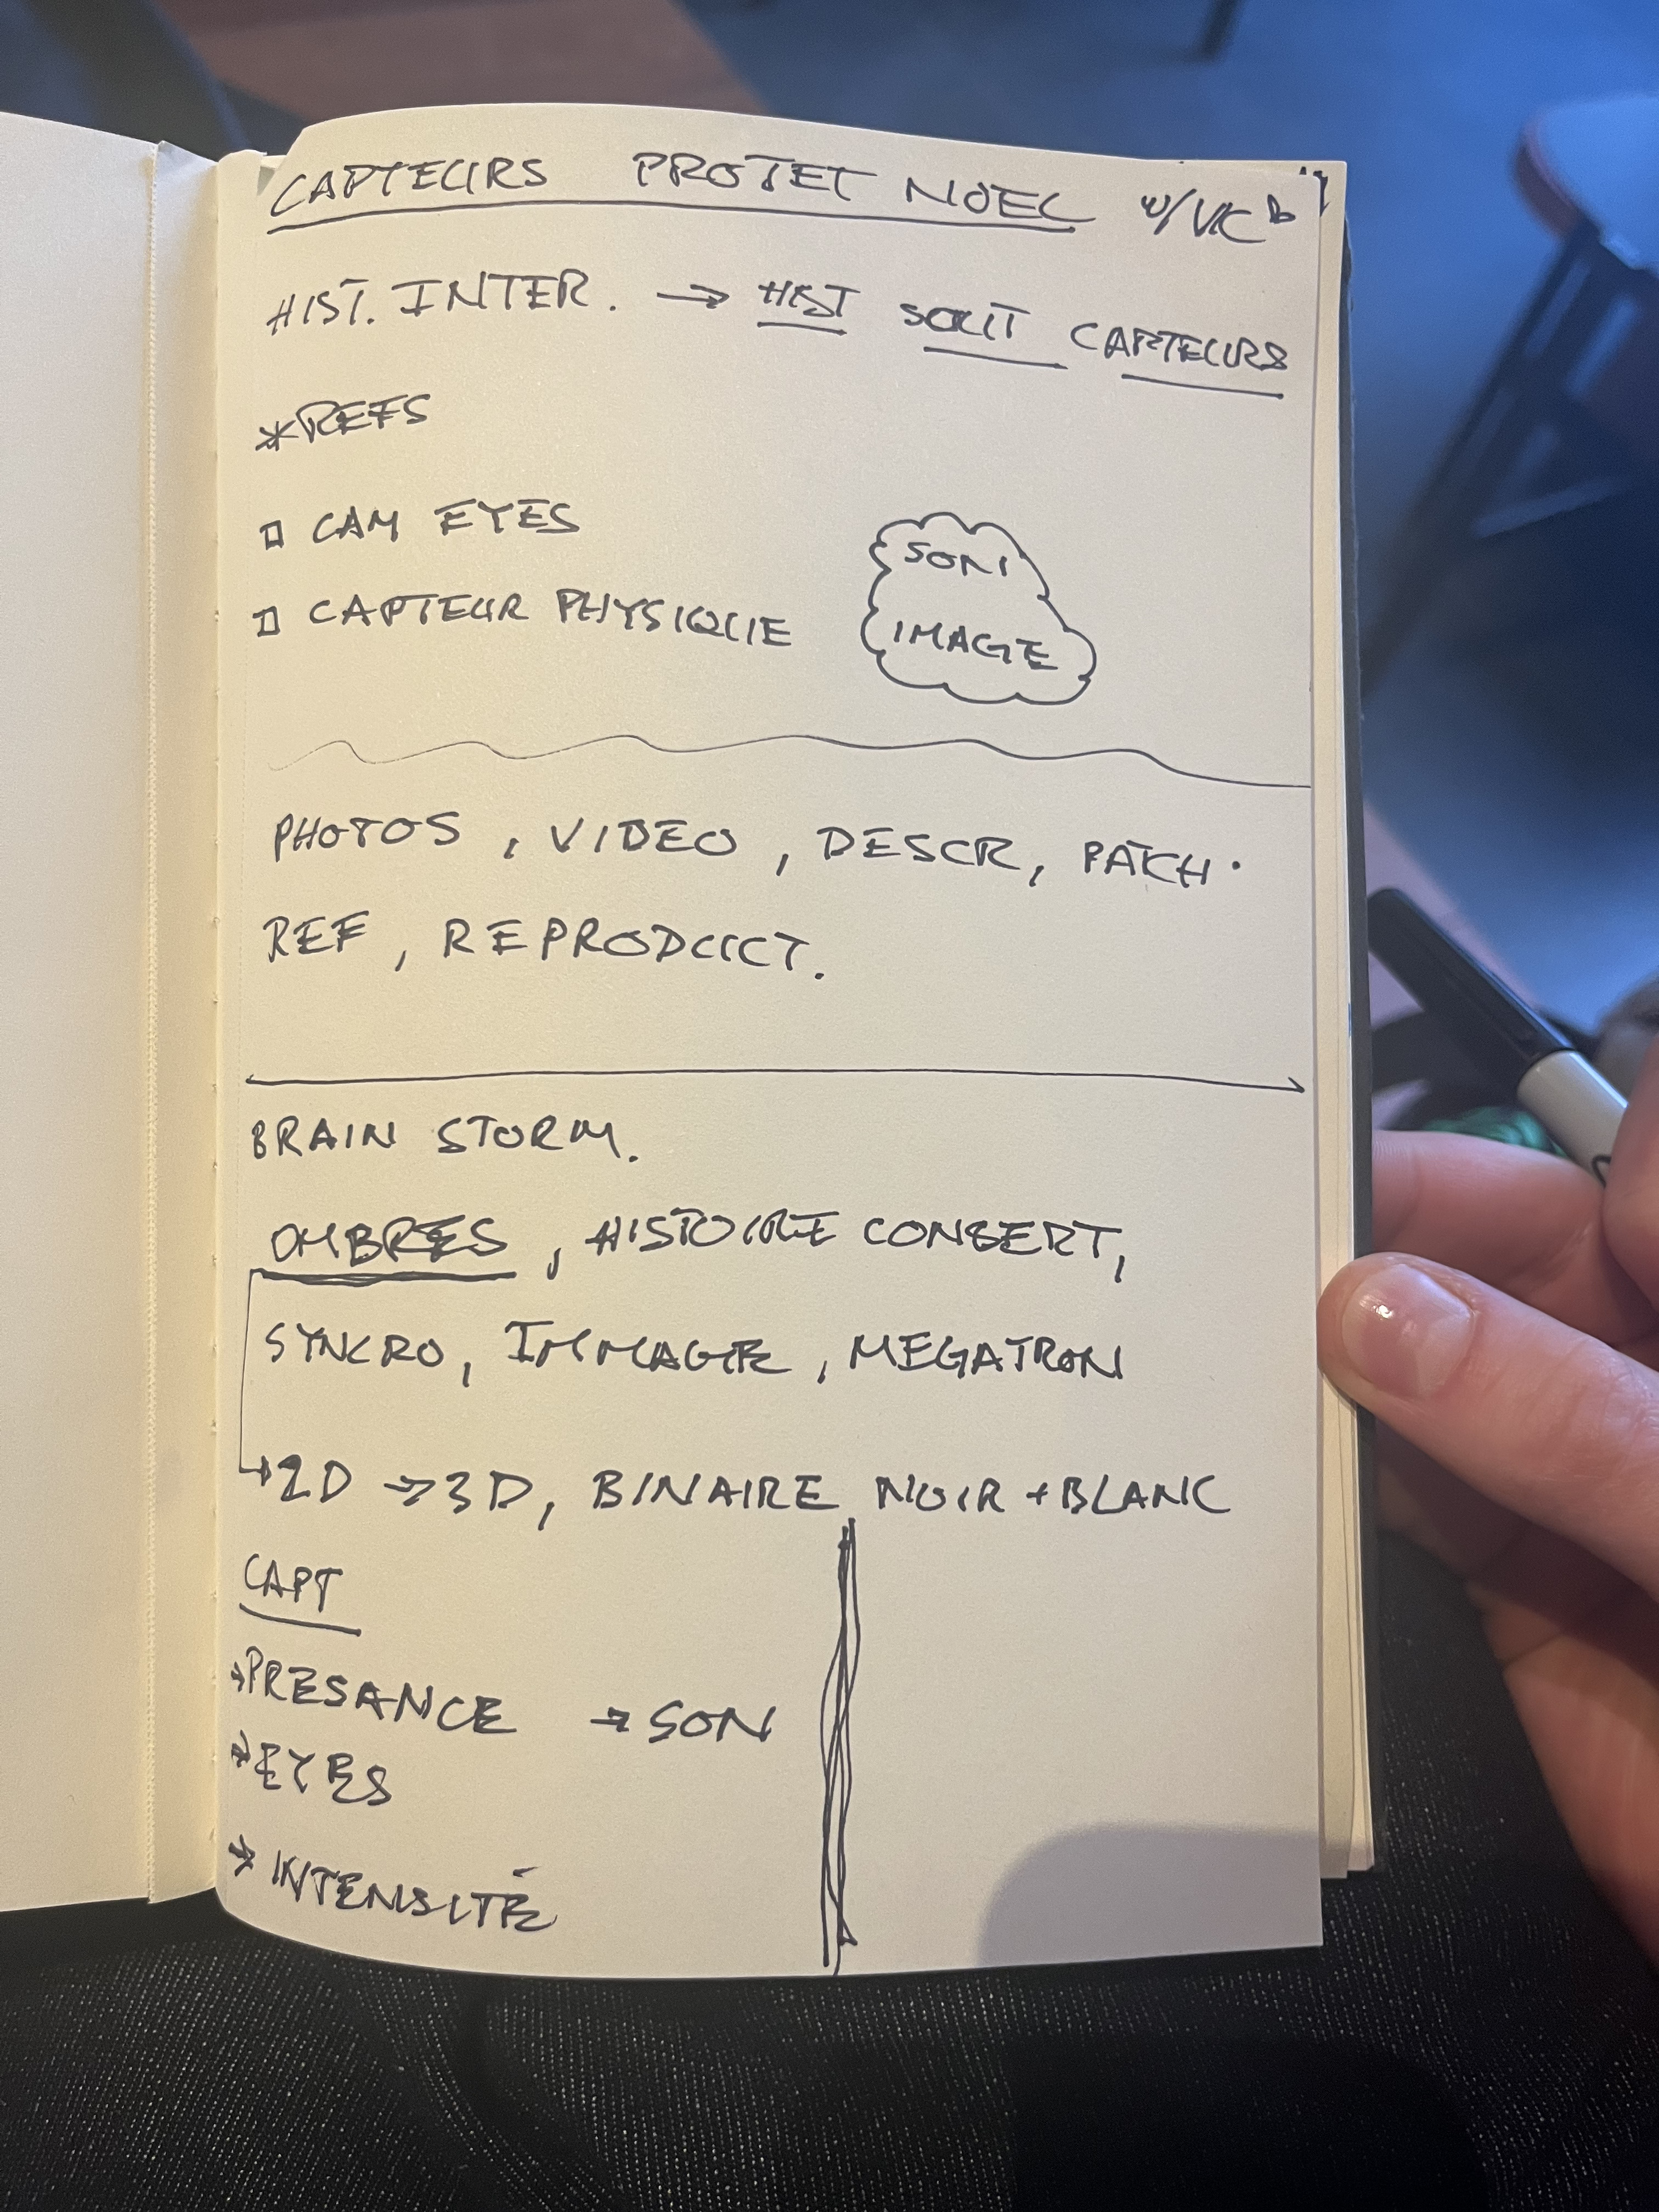 CAPTEURS PROJET NOEL W/VIC
HIST. INTER. → HIST SOUT CAPTEURS
*REFS
□ CAM EYES
□ CAPTEUR PHYSIQUE
SON
IMAGE
PHOTOS, VIDEO, DESCR, PATCH.
REF, REPRODUCT.
BRAIN STORM.
OMBRES, HISTOIRE CONSERT,
SYNCRO, IMMAGE, MEGATRON
→ 2D → 3D, BINAIRE NOIR + BLANC
CAPT
→ PRESANCE → SON
→ EYES
→ INTENSITÉ